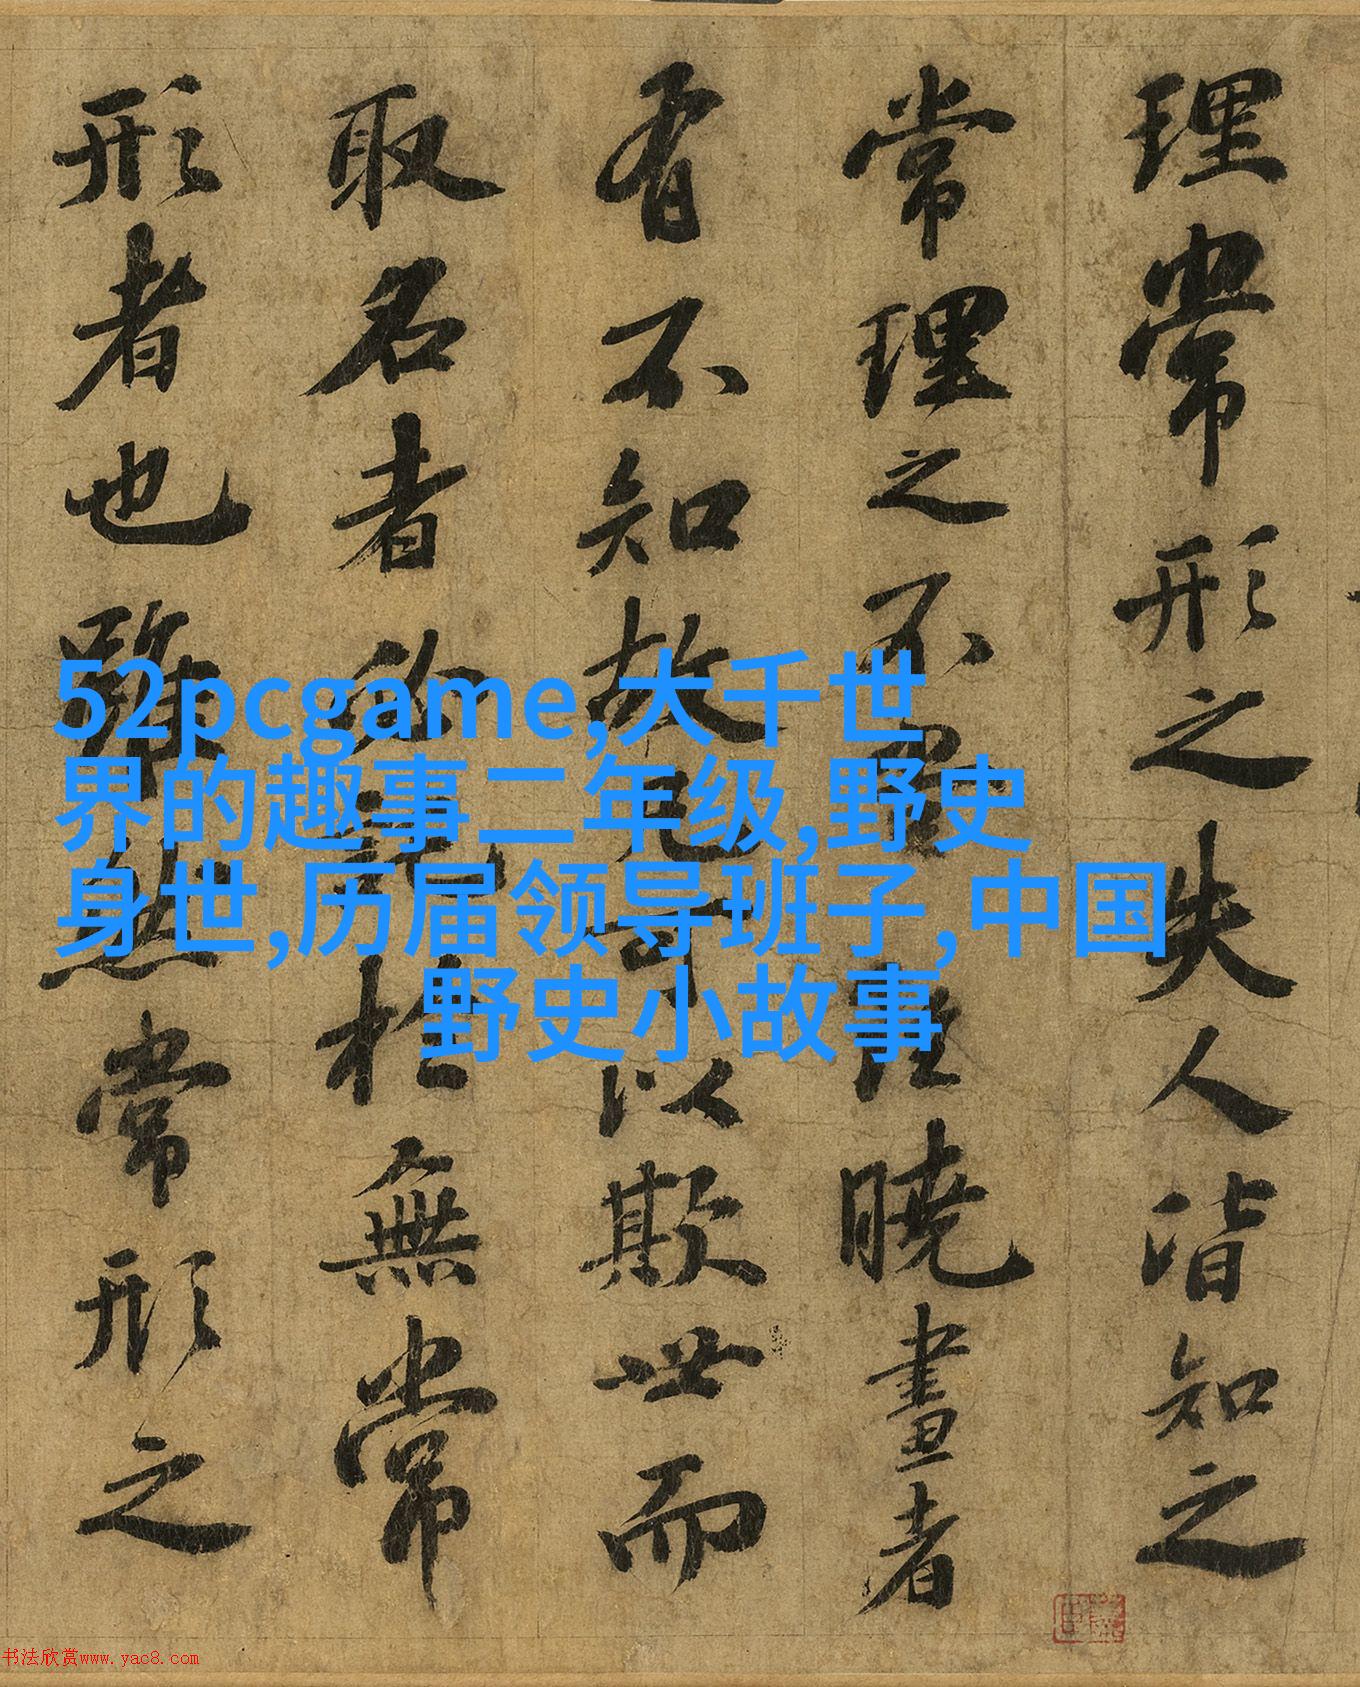 理常形之失人皆知之
常理之不當雖曉畫者
有不知故凡可以欺世而
取名者必託於無常
形者也雖然常形之
52pcgame,大千世
界的趣事二年级,野史
身世,历届领导班子,中国
野史小故事
书法欣赏www.yac8.com